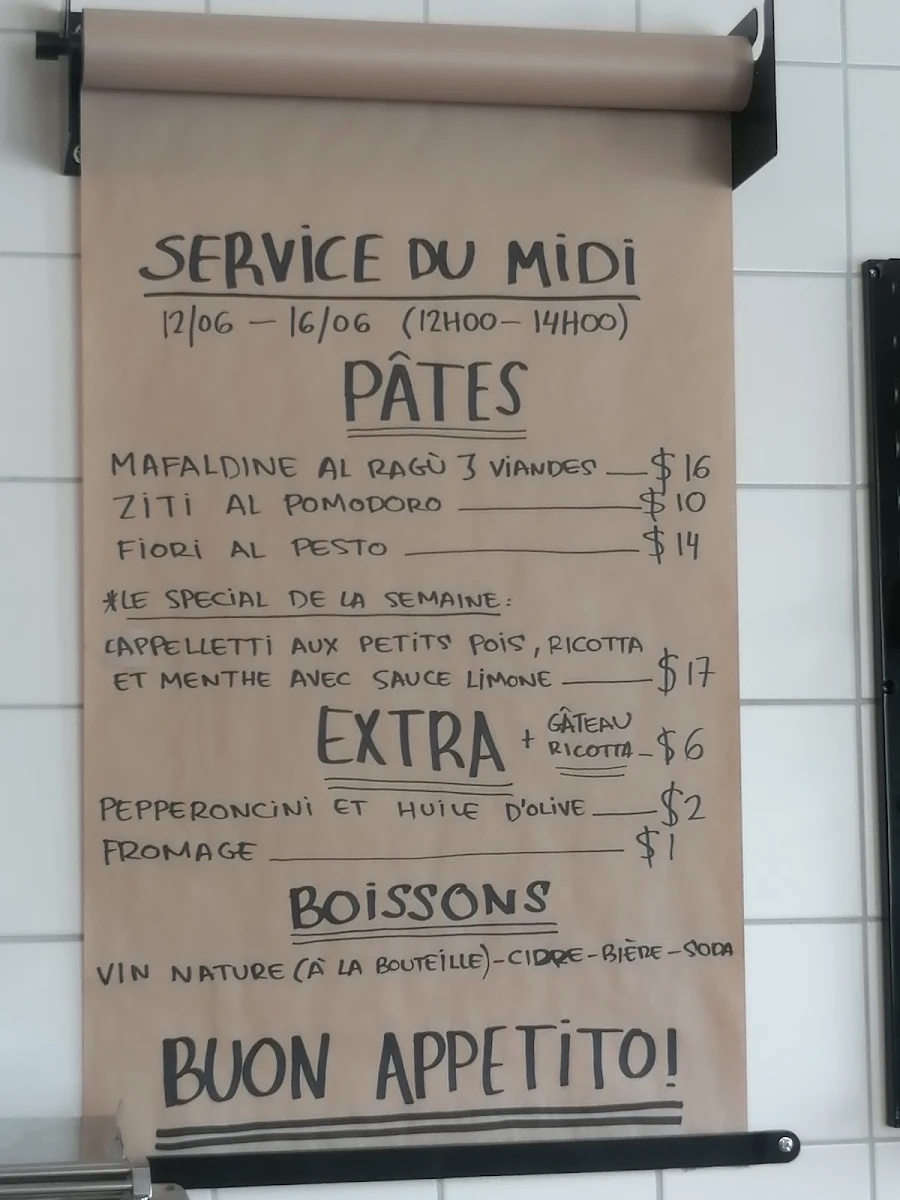 SERVICE DU MIDI
12/06 — 16/06 (12H00 — 14H00)
PÂTES
MAFALDINE AL RAGÙ 3 VIANDES — $16
ZITI AL POMODORO — $10
FIORI AL PESTO — $14
*LE SPECIAL DE LA SEMAINE:
CAPPELLETTI AUX PETITS POIS, RICOTTA
ET MENTHE AVEC SAUCE LIMONE — $17
EXTRA + GÂTEAU RICOTTA — $6
PEPPERONCINI ET HUILE D'OLIVE — $2
FROMAGE — $1
BOISSONS
VIN NATURE (À LA BOUTEILLE) - CIDRE - BIÈRE - SODA
BUON APPETITO!